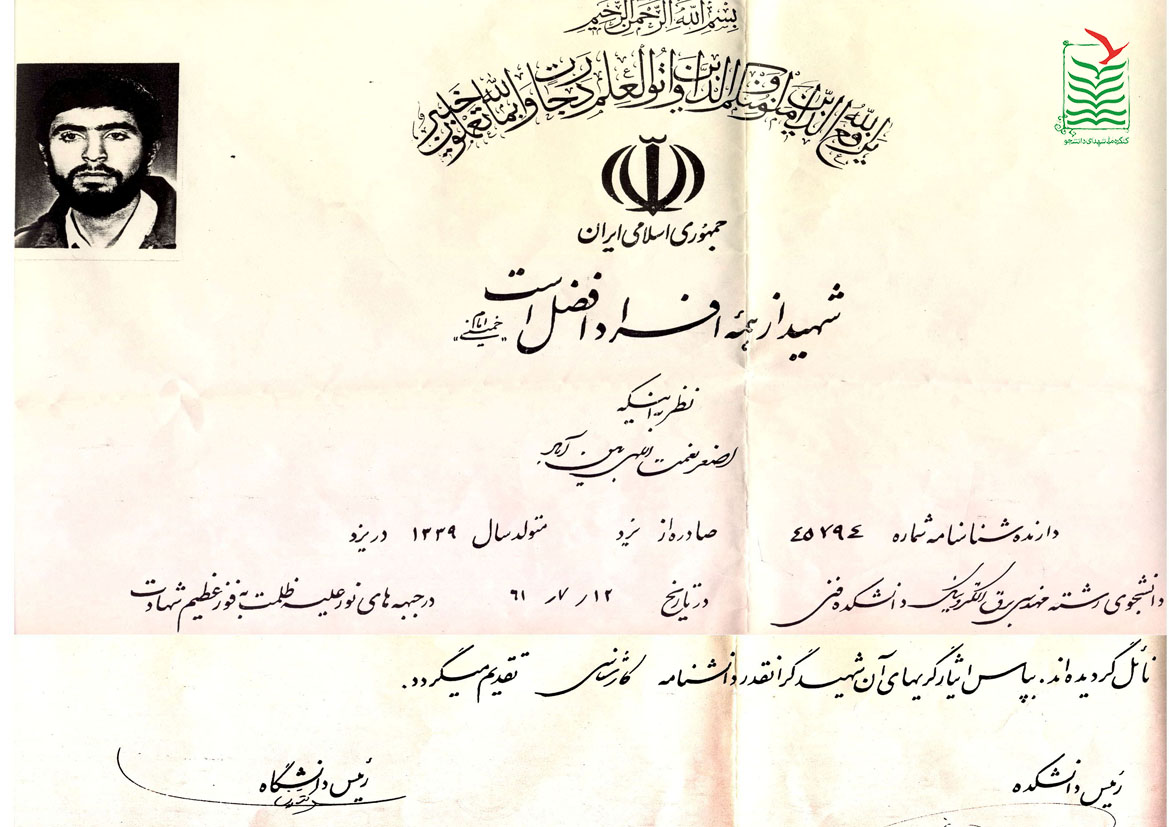 بسم الله الرحمن الرحیم
یرفع الله الذین آمنوا منکم والذین اوتوا العلم درجات والله بما تعملون خبیر
کنگره ملی شهدای دانشجو
جمهوری اسلامی ایران
شهید از همه افراد افضل است
«امام خمینی»
نظر به اینکه
اصغر نعمت اللهی
دارنده شناسنامه شماره ٤٥٧٩٤ صادره از یزد متولد سال ۱۳۳۹ در یزد
دانشجوی رشته مهندسی برق الکترونیک دانشکده فنی در تاریخ ۱۲ / ۷ / ۶۱ در جبهه های نور علیه ظلمت به فوز عظیم شهادت
نائل گردیده اند. بپاس ایثارگریهای آن شهید گرانقدر دانشنامه کارشناسی تقدیم میگردد.
رئیس دانشکده
رئیس دانشگاه